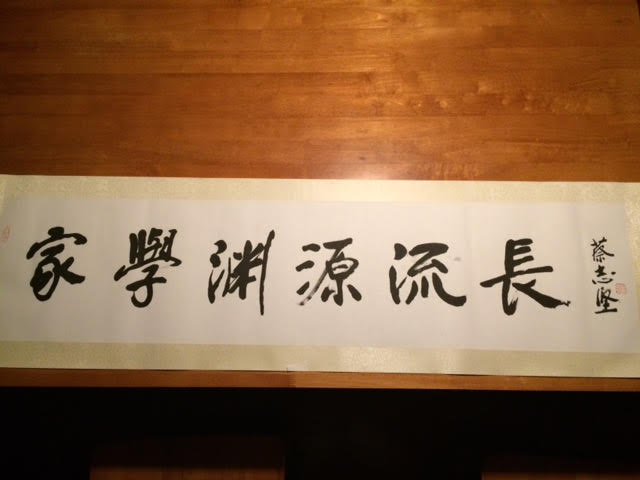 家學淵源流長
蔡志堅